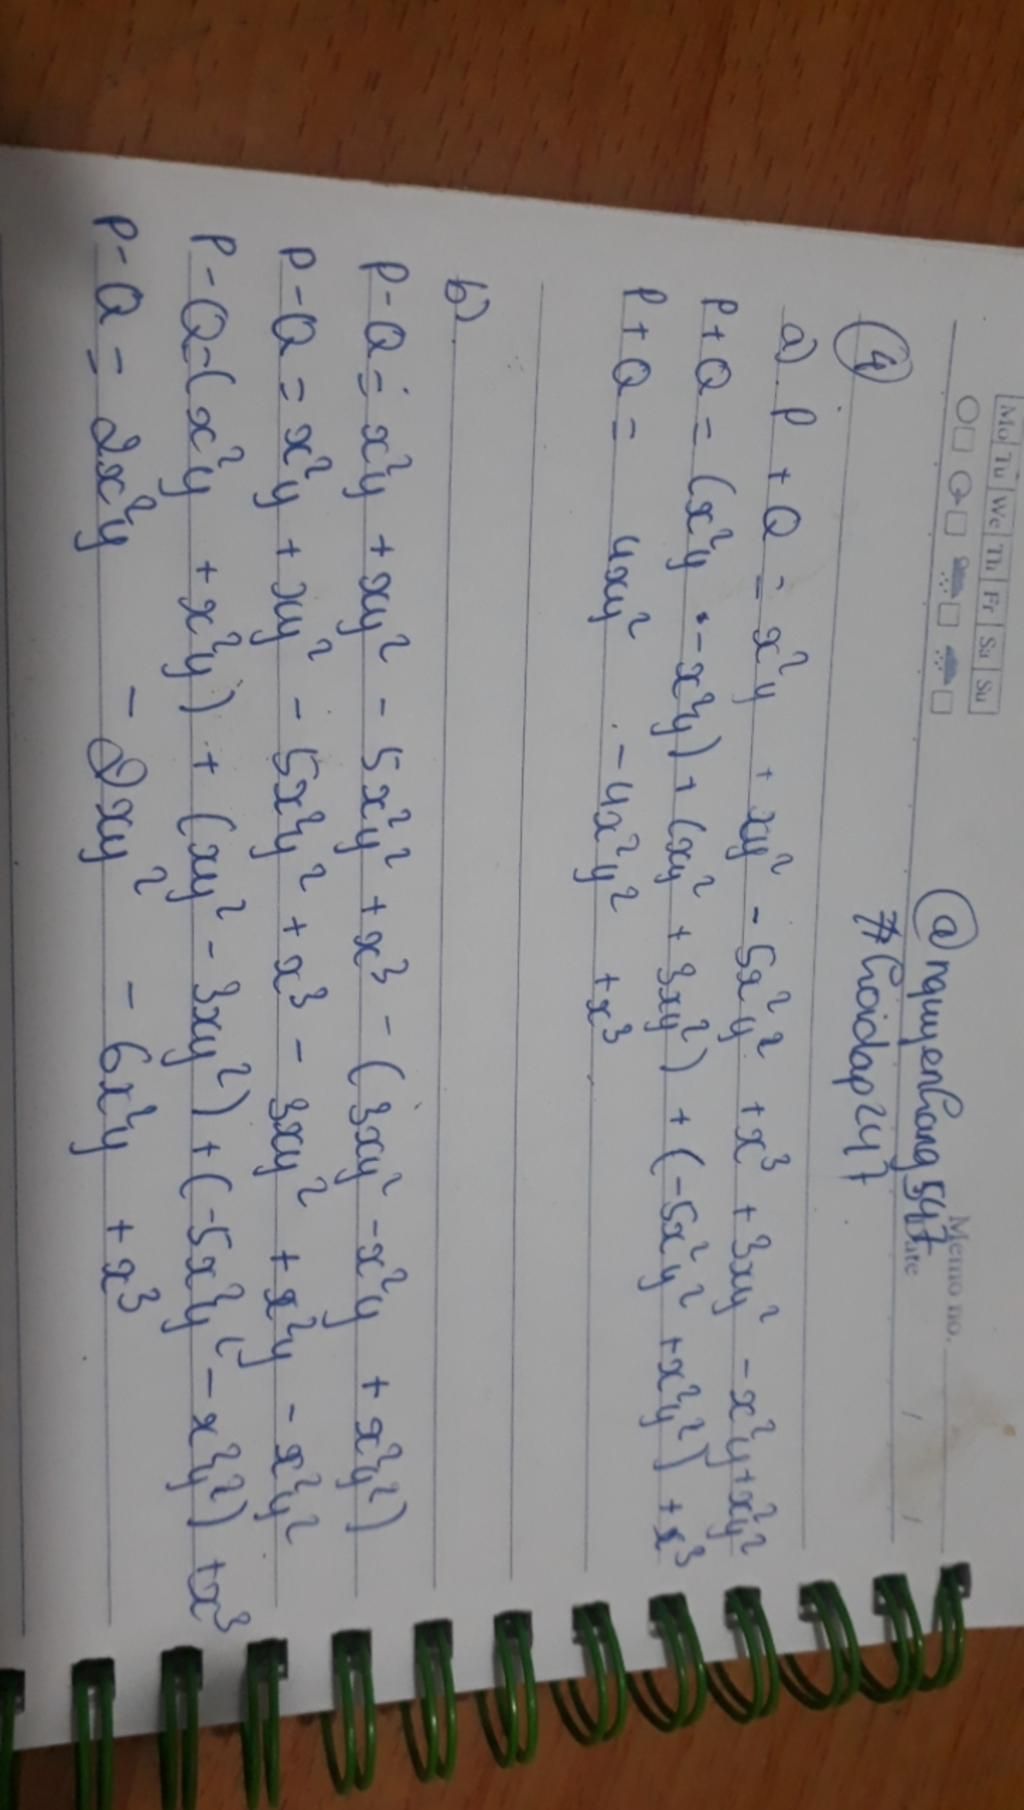 Mo Tu We Th Fr Sa Su
Memo no.
@nguyenhang547
#hoidap247
④
a) P + Q = x²y + xy² - 5x²y² + x³ + 3xy² - x²y + x²y²
P + Q = (x²y - x²y) + (xy² + 3xy²) + (-5x²y² + x²y²) + x³
P + Q = 4xy² - 4x²y² + x³
b)
P - Q = x²y + xy² - 5x²y² + x³ - (3xy² - x²y + x²y²)
P - Q = x²y + xy² - 5x²y² + x³ - 3xy² + x²y - x²y²
P - Q = (x²y + x²y) + (xy² - 3xy²) + (-5x²y² - x²y²) + x³
P - Q = 2x²y - 2xy² - 6x²y + x³